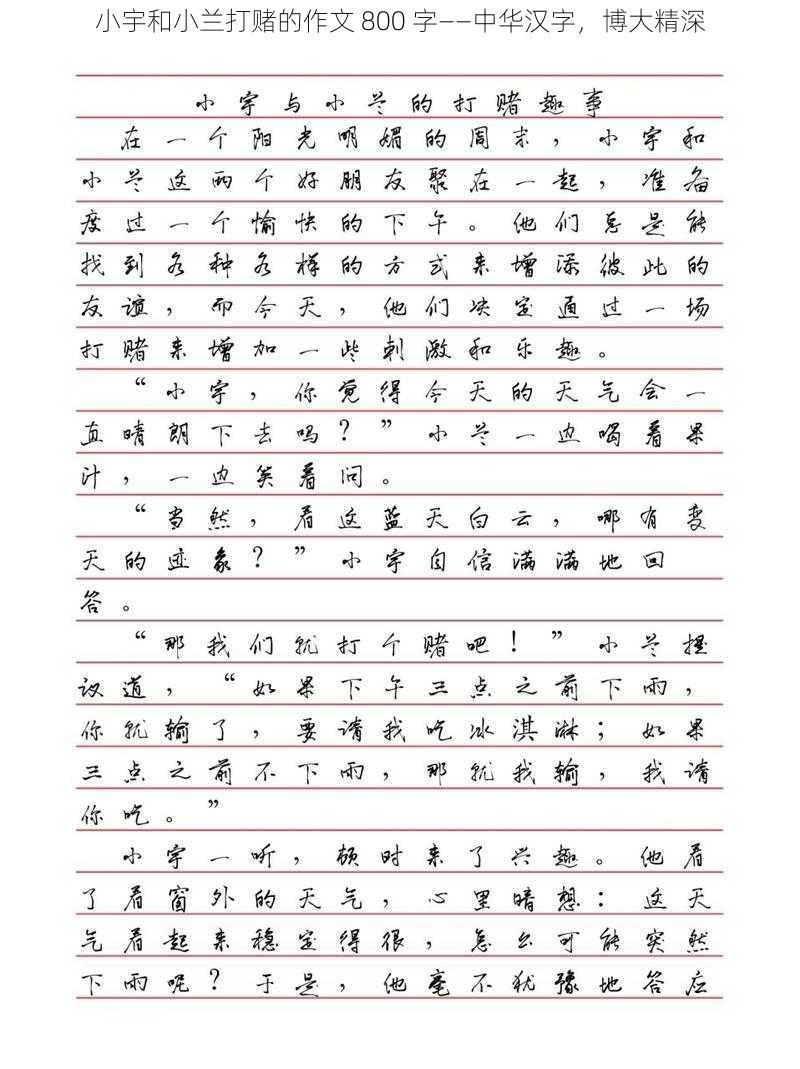 小宇和小兰打赌的作文 800 字——中华汉字，博大精深
小宇与小兰的打赌趣事
在一个阳光明媚的周末，小宇和
小兰这两个好朋友聚在一起，准备
度过一个愉快的下午。他们总是能
找到各种各样的方式来增添彼此的
友谊，而今天，他们决定通过一场
打赌来增加一些刺激和乐趣。
“小宇，你觉得今天的天气会一
直晴朗下去吗？”小兰一边喝着果
汁，一边笑着问。
“当然，看这蓝天白云，哪有变
天的迹象？”小宇自信满满地回
答。
“那我们就打个赌吧！”小兰提
议道，“如果下午三点之前下雨，
你就输了，要请我吃冰淇淋；如果
三点之前不下雨，那就我输，我请
你吃。”
小宇一听，顿时来了兴趣。他看
了看窗外的天气，心里暗想：这天
气看起来稳定得很，怎么可能突然
下雨呢？于是，他毫不犹豫地答应